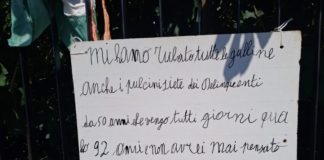 milano rubato tutte le galline
anche i pulcini siete dei delinquenti
da 50 anni che vengo tutti giorni qua
ho 92 anni e non avrei mai pensato